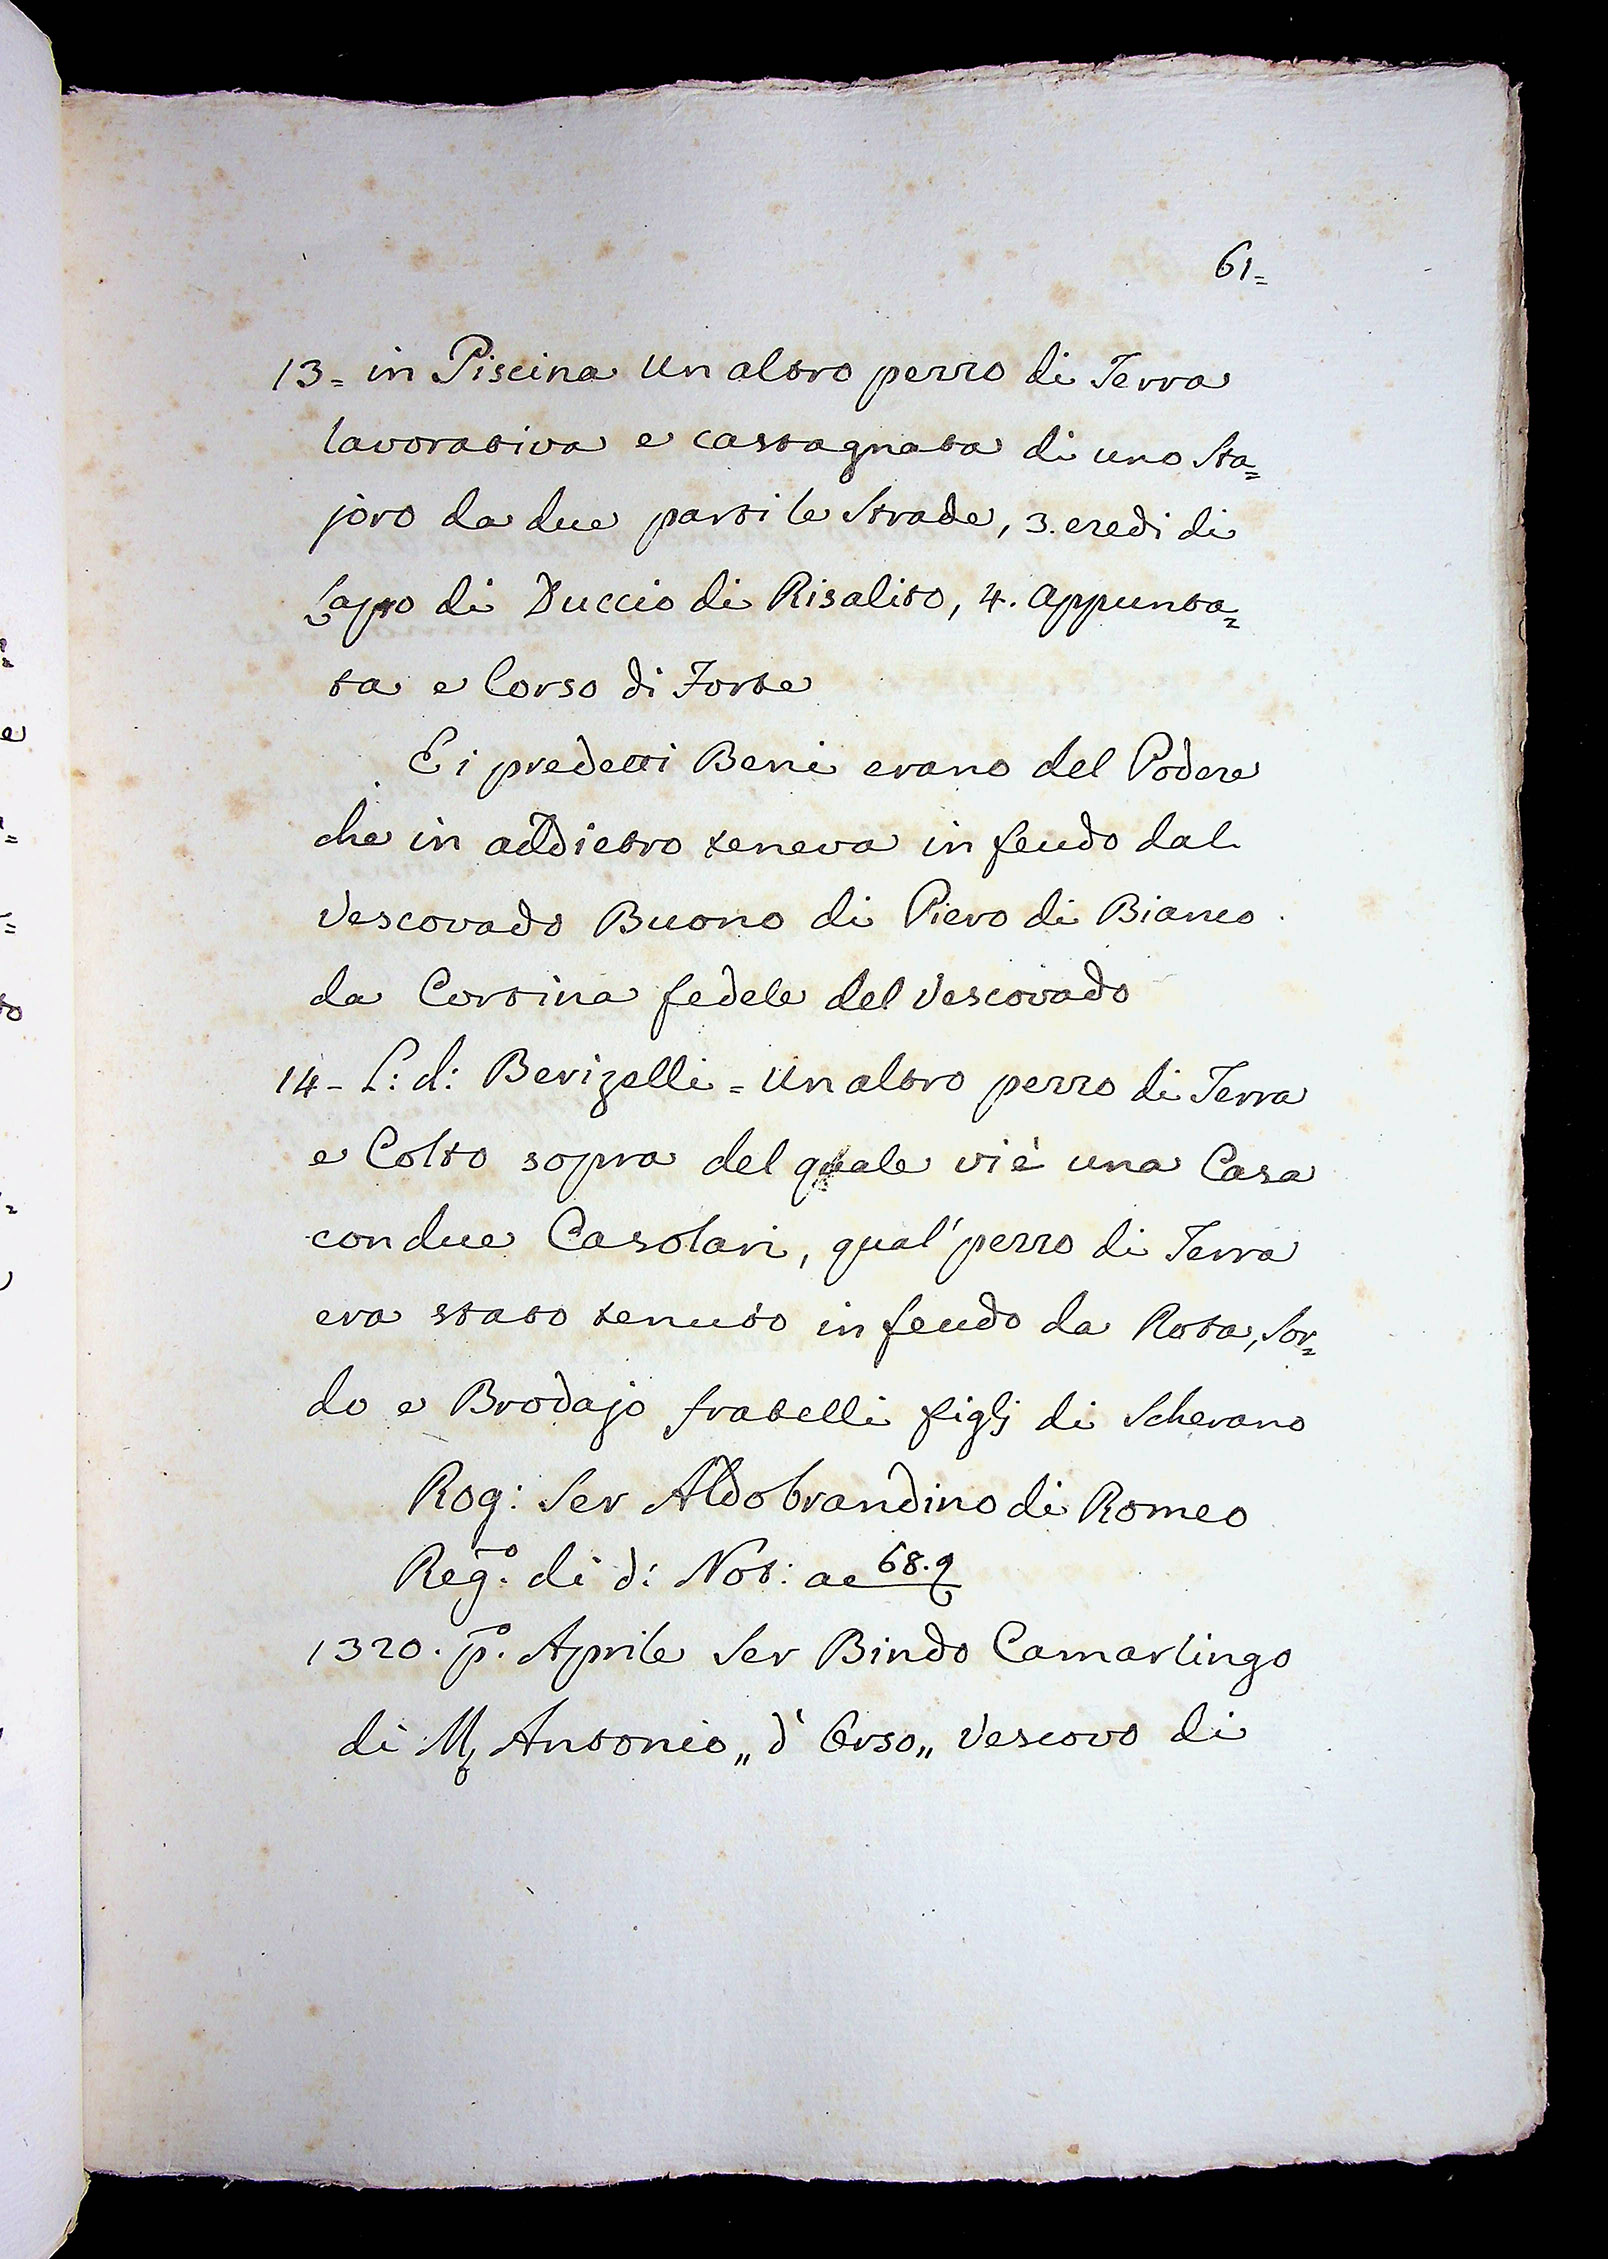 61=
13= in Piscina un altro pezzo di Terra
lavorativa e castagnata di uno Sta=
joro da due parti le Strade, 3. eredi di
Lapo di Duccio di Risalito, 4. appunta=
ta e Corso di Forte
E i predetti Beni erano del Podere
che in addietro teneva in feudo dal
Vescovado Buono di Piero di Bianco
da Cortina fedele del Vescovado
14- L: d: Berizelli = Un altro pezzo di Terra
e Colto sopra del quale vi è una Casa
con due Casolari, qual' pezzo di Terra
era stato tenuto in feudo da Rota, Sor=
do e Brodajo fratelli figlj di Scherano
Rog: Ser Aldobrandino di Romeo
Reg.º di d: Not: a c 68.
1320. p.º Aprile Ser Bindo Camarlingo
di M. Antonio „ d' Orso „ Vescovo di